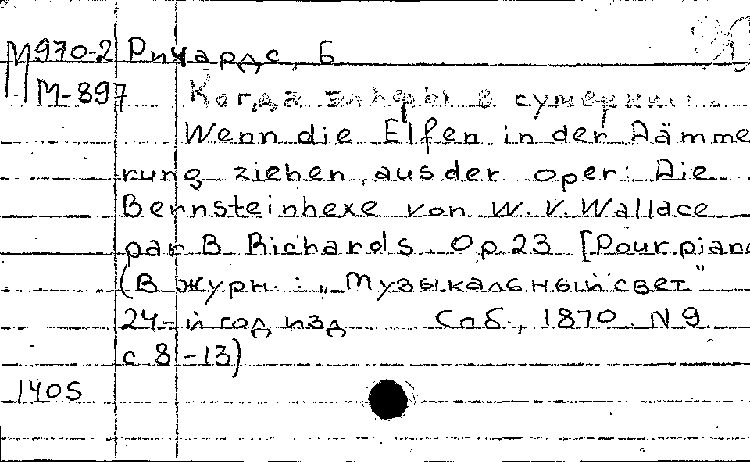 М970-2 Ричардс, Б
М-897 Когда эльфы в сумерки
Wenn die Elfen in der Dämme
rung ziehen, aus der oper: Die
Bernsteinhexe von W. V. Wallace
par B Richards. Op. 23 [Pour piano
(В журн.: „Музыкальный свет"
24-й год изд Спб., 1870. N 9
с 8-13)
1405